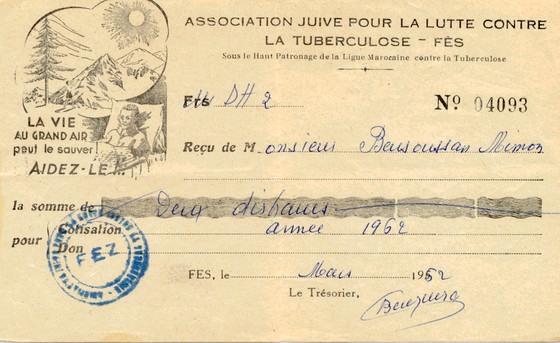 ASSOCIATION JUIVE POUR LA LUTTE CONTRE
LA TUBERCULOSE - FÈS
Sous le Haut Patronage de la Ligue Marocaine contre la Tuberculose
Frs DH 2
Nº 04093
LA VIE
AU GRAND AIR
peut le sauver
AIDEZ-LE !..
Reçu de Monsieur Bensoussan Mimon
la somme de Deux dirhams
pour Cotisation
Don
année 1962
FEZ
FES, le Mars 1962
Le Trésorier,